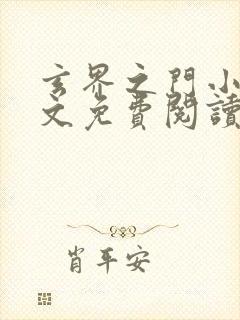 玄界之門小
文免費閱讀
肖平安